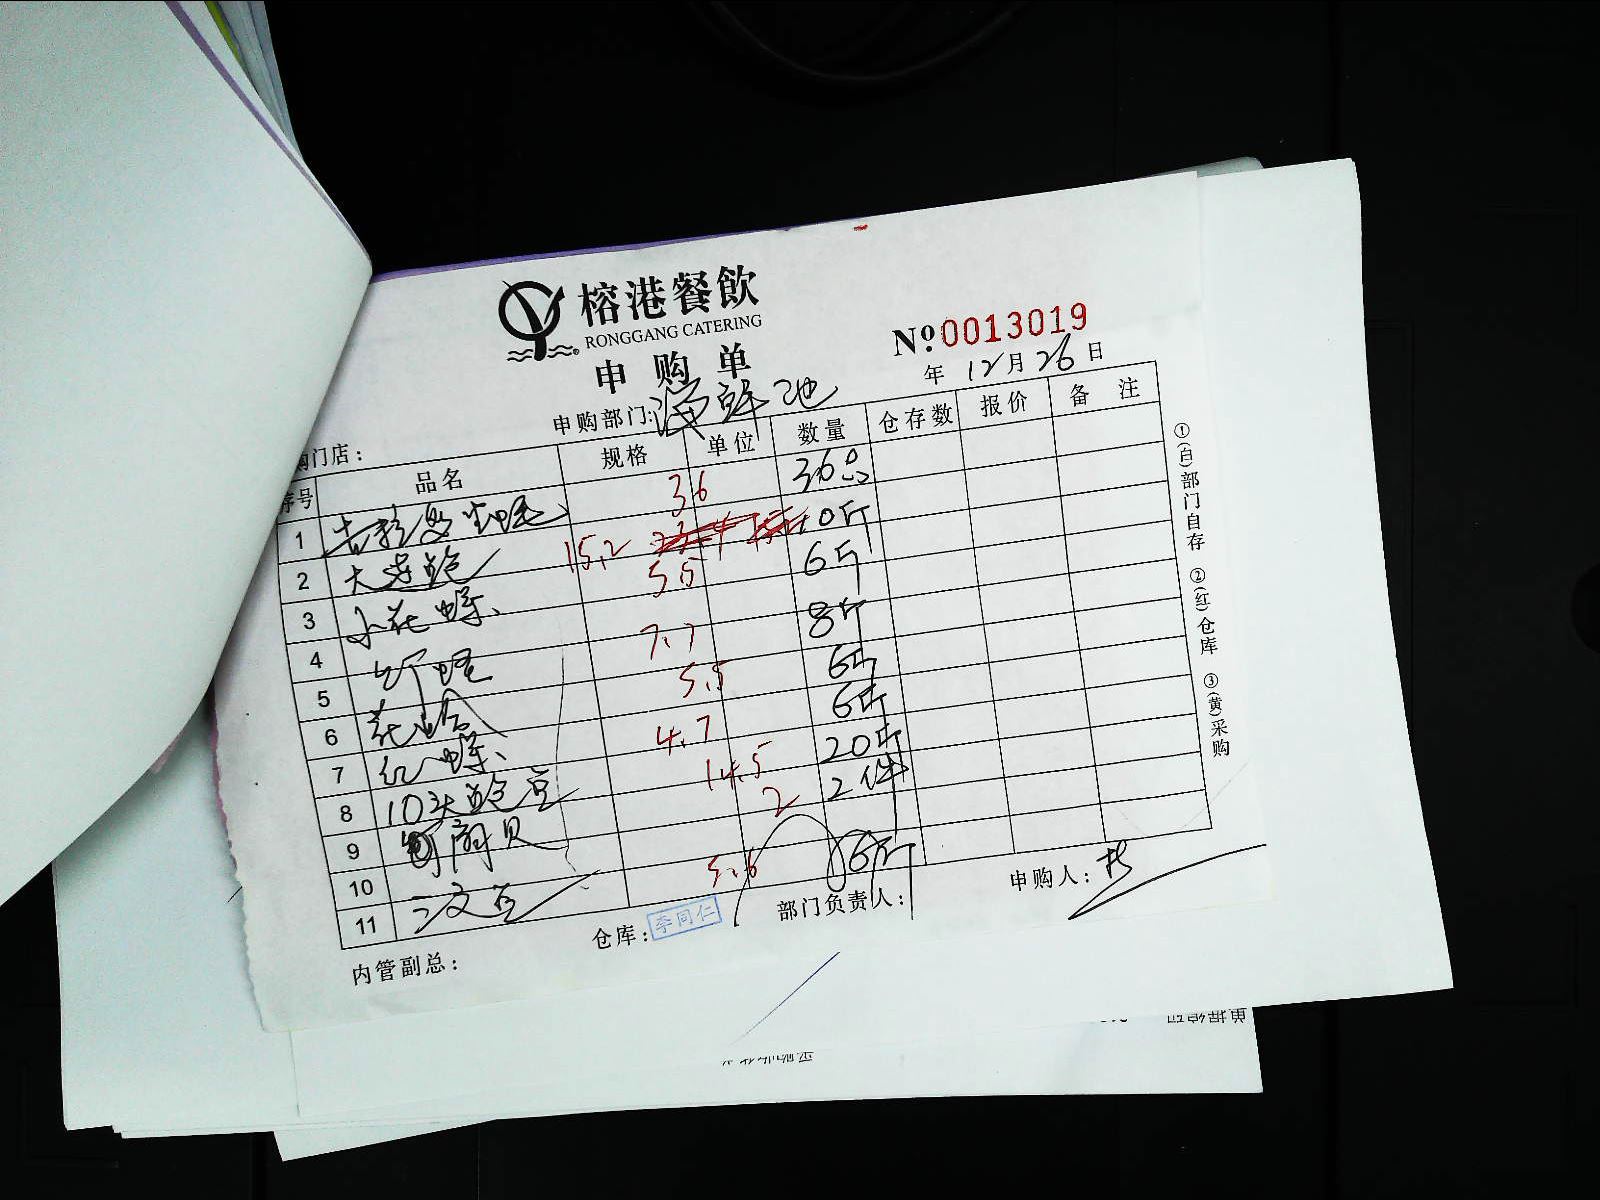 榕港餐飲
RONGGANG CATERING
申购单
№0013019
年 12月26日
申购部门:海鲜池
购门店:
序号 品名 规格 单位 数量 仓存数 报价 备注
1 吉拉多生蚝 36 36只
2 大连鲍 15.2 10斤
3 小花螺 5.5 6斤
4 竹蛏 7.7 8斤
5 花蛤 5.5 6斤
6 红螺 4.7 6斤
7 10头鲍 14.5 20斤
8 扇贝 2 2件
9
10 5.6 6斤
11
内管副总:
仓库:李同仁
部门负责人:
申购人:
①(白)部门自存 ②(红)仓库 ③(黄)采购